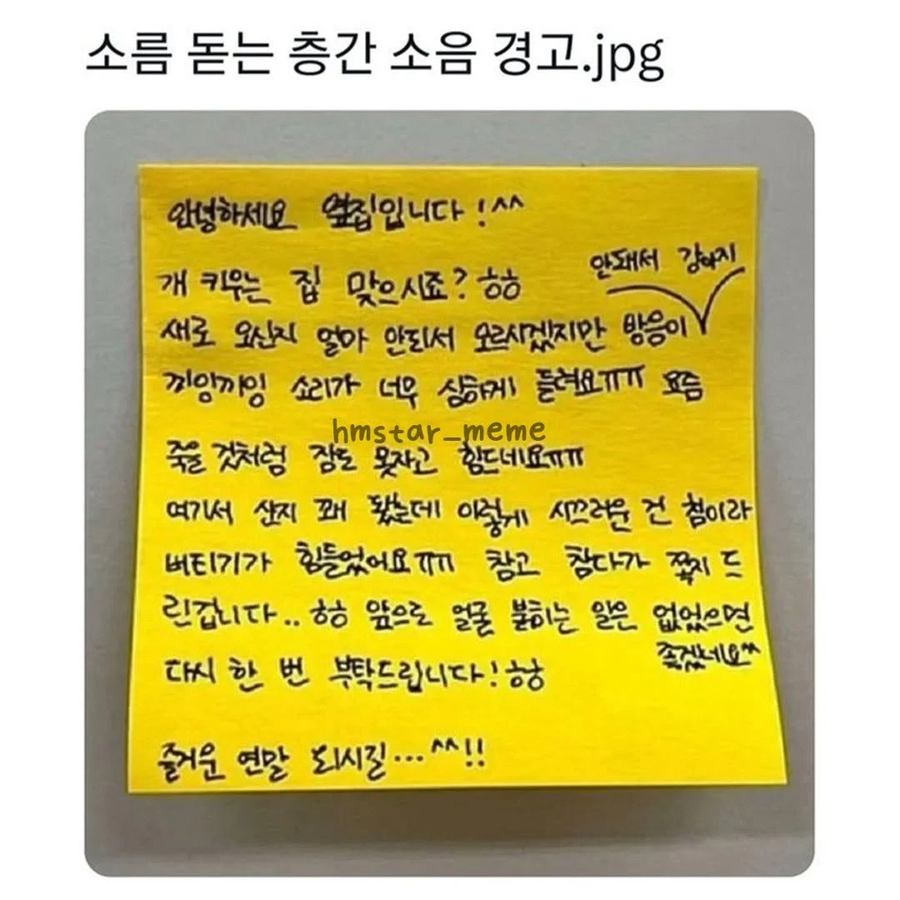 소름 돋는 층간 소음 경고.jpg
안녕하세요 옆집입니다!^^
개 키우는 집 맞으시죠? ㅎㅎ
안돼서 강아지
새로 오신지 얼마 안되서 모르시겠지만 방음이
끼잉끼잉 소리가 너무 심하게 들려요ㅠㅠ 요즘
hmstar_meme
죽을 것처럼 잠도 못자고 힘드네요ㅠㅠ
여기서 산지 꽤 됐는데 이렇게 시끄러운 건 첨이라
버티기가 힘들었어요ㅠㅠ 참고 참다가 쪽지 드
린겁니다.. ㅎㅎ 앞으로 얼굴 붉히는 일은 없었으면
좋겠네요^^
다시 한 번 부탁드립니다! ㅎㅎ
즐거운 연말 되시길...^^!!